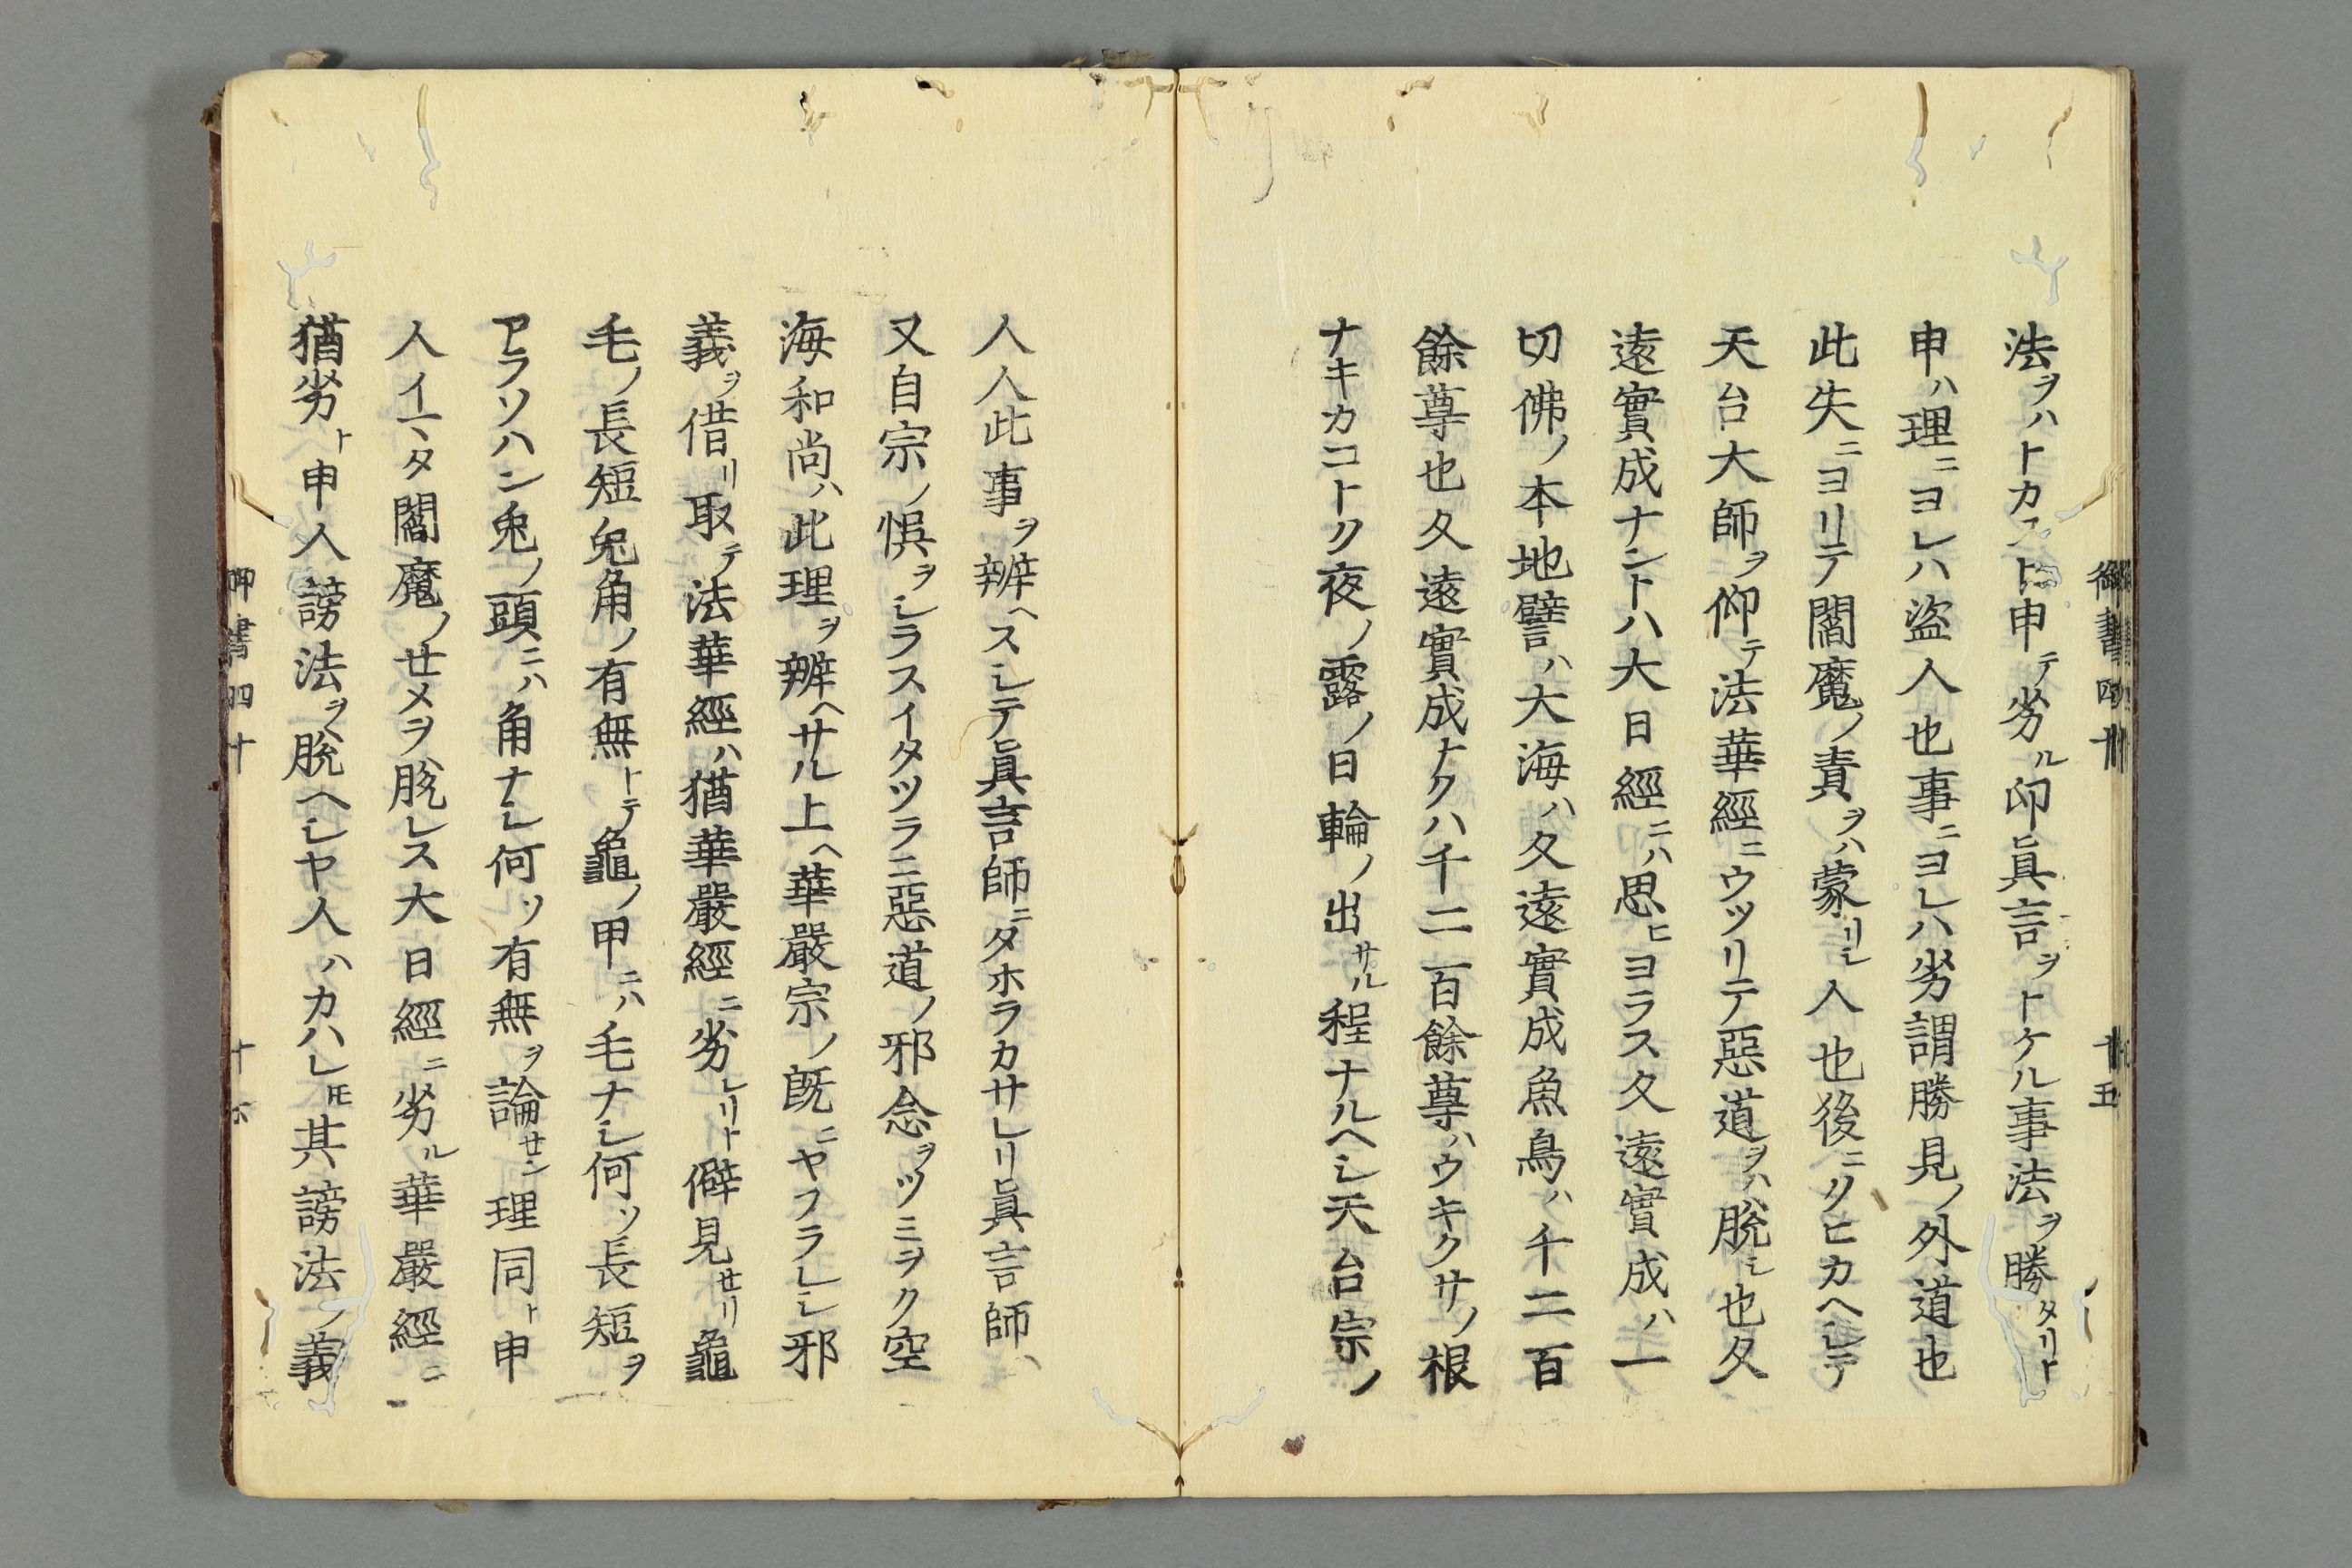 法ヲハトカスト申テ劣ル印眞言ヲトケル事法ヲ勝タリト
申ハ理ニヨレハ盜人也事ニヨレハ劣謂勝見ノ外道也
此失ニヨリテ閻魔ノ責ヲハ蒙リシ人也後ニクヒカヘシテ
天台大師ヲ仰テ法華經ニウツリテ惡道ヲハ脫シ也久
遠實成ナントハ大日經ニハ思ヒヨラス久遠實成ハ一
切佛ノ本地譬ハ大海ハ久遠實成魚鳥ハ千二百
餘尊也久遠實成ナクハ千二百餘尊ハウキクサノ根
ナキカコトク夜ノ露ノ日輪ノ出サル程ナルヘシ天台宗ノ
人人此事ヲ辨ヘスシテ眞言師ニタホラカサレリ眞言師ハ
又自宗ノ悞ヲシラスイタツラニ惡道ノ邪念ヲツミヲク空
海和尚ハ此理ヲ辨ヘサル上ヘ華嚴宗ノ既ニヤフラレシ邪
義ヲ借リ取テ法華經ハ猶華嚴經ニ劣レリト僻見セリ龜
毛ノ長短兎角ノ有無トテ龜ノ甲ニハ毛ナシ何ソ長短ヲ
アラソハン兎ノ頭ニハ角ナシ何ソ有無ヲ論セン理同ト申
人イマタ閻魔ノセメヲ脫レス大日經ニ劣ル華嚴經ニ
猶劣ト申人謗法ヲ脫ヘシヤ人ハカハレ𪜈其謗法ノ義
御書四十
十五
御書四十
十六